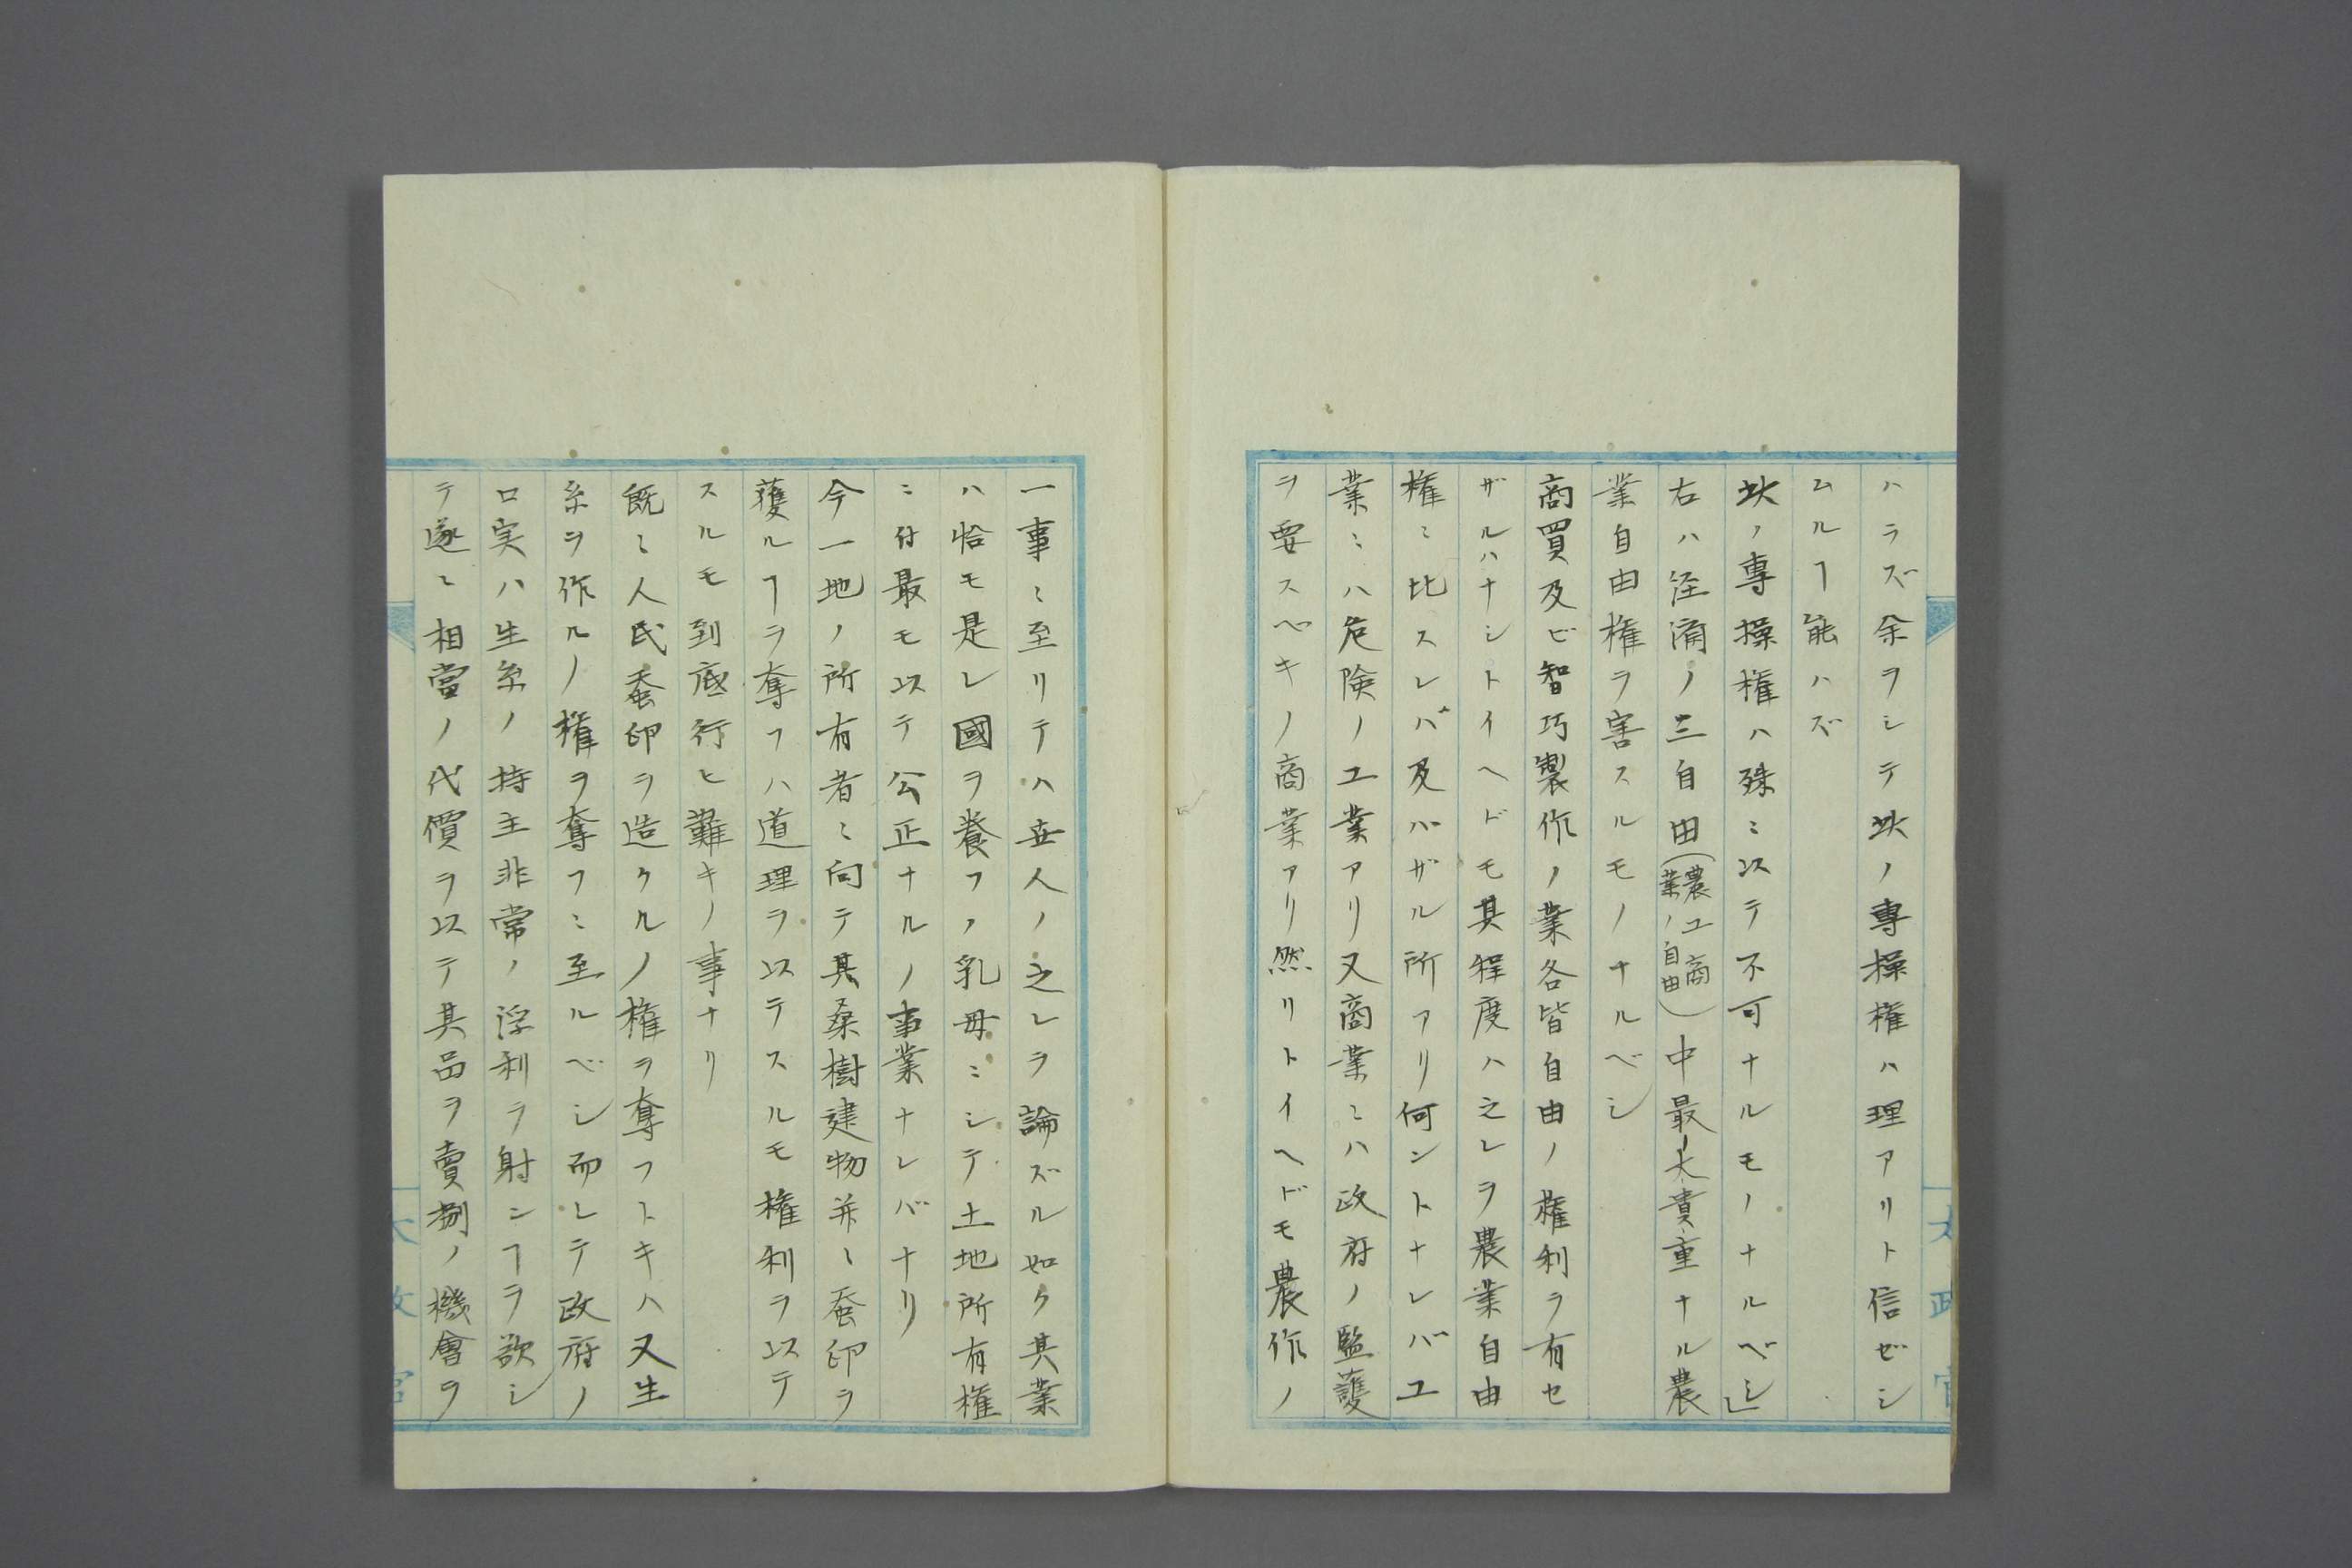 ハラズ余ヲシテ此ノ專操権ハ理アリト信ゼシ
ムルヿ能ハズ
此ノ專操権ハ殊ニ以テ不可ナルモノナルベシ」
右ハ汪涌ノ三自由(農工商業ノ自由)中最大貴重ナル農
業自由権ヲ害スルモノナルベシ
商買及ビ智巧製作ノ業各皆自由ノ権利ヲ有セ
ザルハナシトイヘドモ其程度ハ之レヲ農業自由
権ニ比スレバ及ハザル所アリ何ントナレバ工
業ニハ危険ノ工業アリ又商業ニハ政府ノ監護
ヲ要スベキノ商業アリ然リトイヘドモ農作ノ
太政官
一事ニ至リテハ世人ノ之レヲ論ズル如ク其業
ハ恰モ是レ國ヲ養フノ乳母ニシテ土地所有権
ニ付最モ以テ公正ナルノ事業ナレバナリ
今一地ノ所有者ニ向テ其桑樹建物并ニ蚕卵ヲ
獲ルヿヲ奪フハ道理ヲ以テスルモ権利ヲ以テ
スルモ到底行ヒ難キノ事ナリ
既ニ人民蚕卵ヲ造クルノ権ヲ奪フトキハ又生
糸ヲ作ルノ権ヲ奪フニ至ルベシ而レテ政府ノ
口実ハ生糸ノ持主非常ノ浮利ヲ射ンヿヲ欲シ
テ遂ニ相當ノ代價ヲ以テ其品ヲ賣捌ノ機會ヲ
太政官